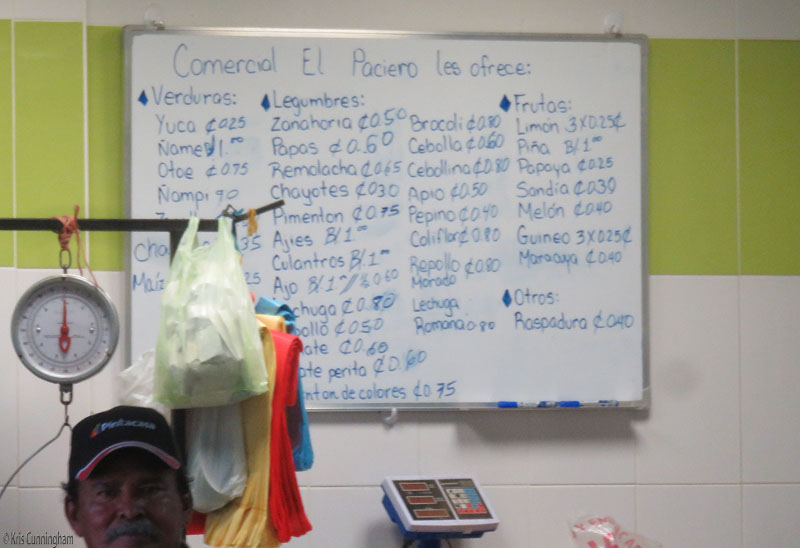 Comercial El Paciero les ofrece:
Verduras:
Yuca ¢0.25
Ñame B/1.00
Otoe ¢0.75
Ñampi 90
35
Maíz 25
Legumbres:
Zanahoria ¢0.50
Papas ¢0.60
Remolacha ¢0.65
Chayotes ¢0.30
Pimenton ¢0.75
Ajies B/1.00
Culantros B/1.00
Ajo B/1.00 // ½ 0.60
chuga ¢0.80
ollo ¢0.50
ate ¢0.60
ate perita ¢0.60
nton de colores ¢0.75
Brocoli ¢0.80
Cebolla ¢0.60
Cebollina ¢0.80
Apio ¢0.50
Pepino ¢0.40
Coliflor ¢0.80
Repollo ¢0.80
Morado
Lechuga
Romana 0.80
Frutas:
Limón 3X0.25¢
Piña B/1.00
Papaya ¢0.25
Sandia ¢0.30
Melón ¢0.40
Guineo 3X0.25¢
Maracuya ¢0.40
Otros:
Raspadura ¢0.40
Pintacasa
©Kris Cunningham